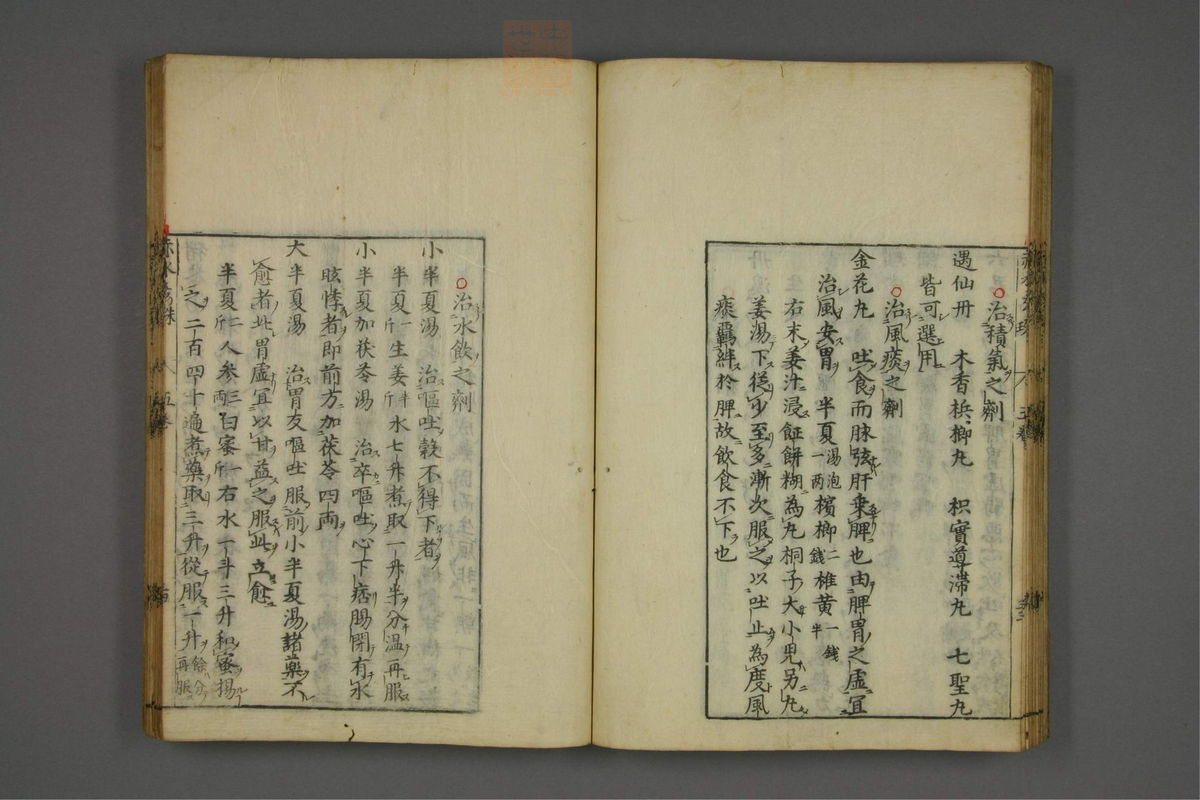 治積氣之劑
遇仙册 木香梹榔丸 枳實導滞丸 七聖丸
皆可選用
治風痰之劑
金花丸 吐食而脉弦肝乗脾也由脾胃之虚宜
治風安胃 半夏一两湯泡 檳榔二錢 椎黄一錢半
右末姜汁浸䭔餅糊為丸桐子大小児另丸
姜湯下從少至多漸次服之以吐止為度風
痰羈絆於脾故飲食不下也
治水飲之劑
小半夏湯 治嘔吐穀不得下者
半夏一斤生姜半斤水七升煮取一升半分温再服
小半夏加茯苓湯 治卒嘔吐心下痞腸閉有水
眩悸者即前方加茯苓四両
大半夏湯 治胃友嘔吐服前小半夏湯諸藥不
愈者此胃虚宜以甘益之服此立愈
半夏二斤人参三両白蜜一斤右水一斗三升和蜜揚
之二百四十遍煮藥取三升從服一升餘分再服